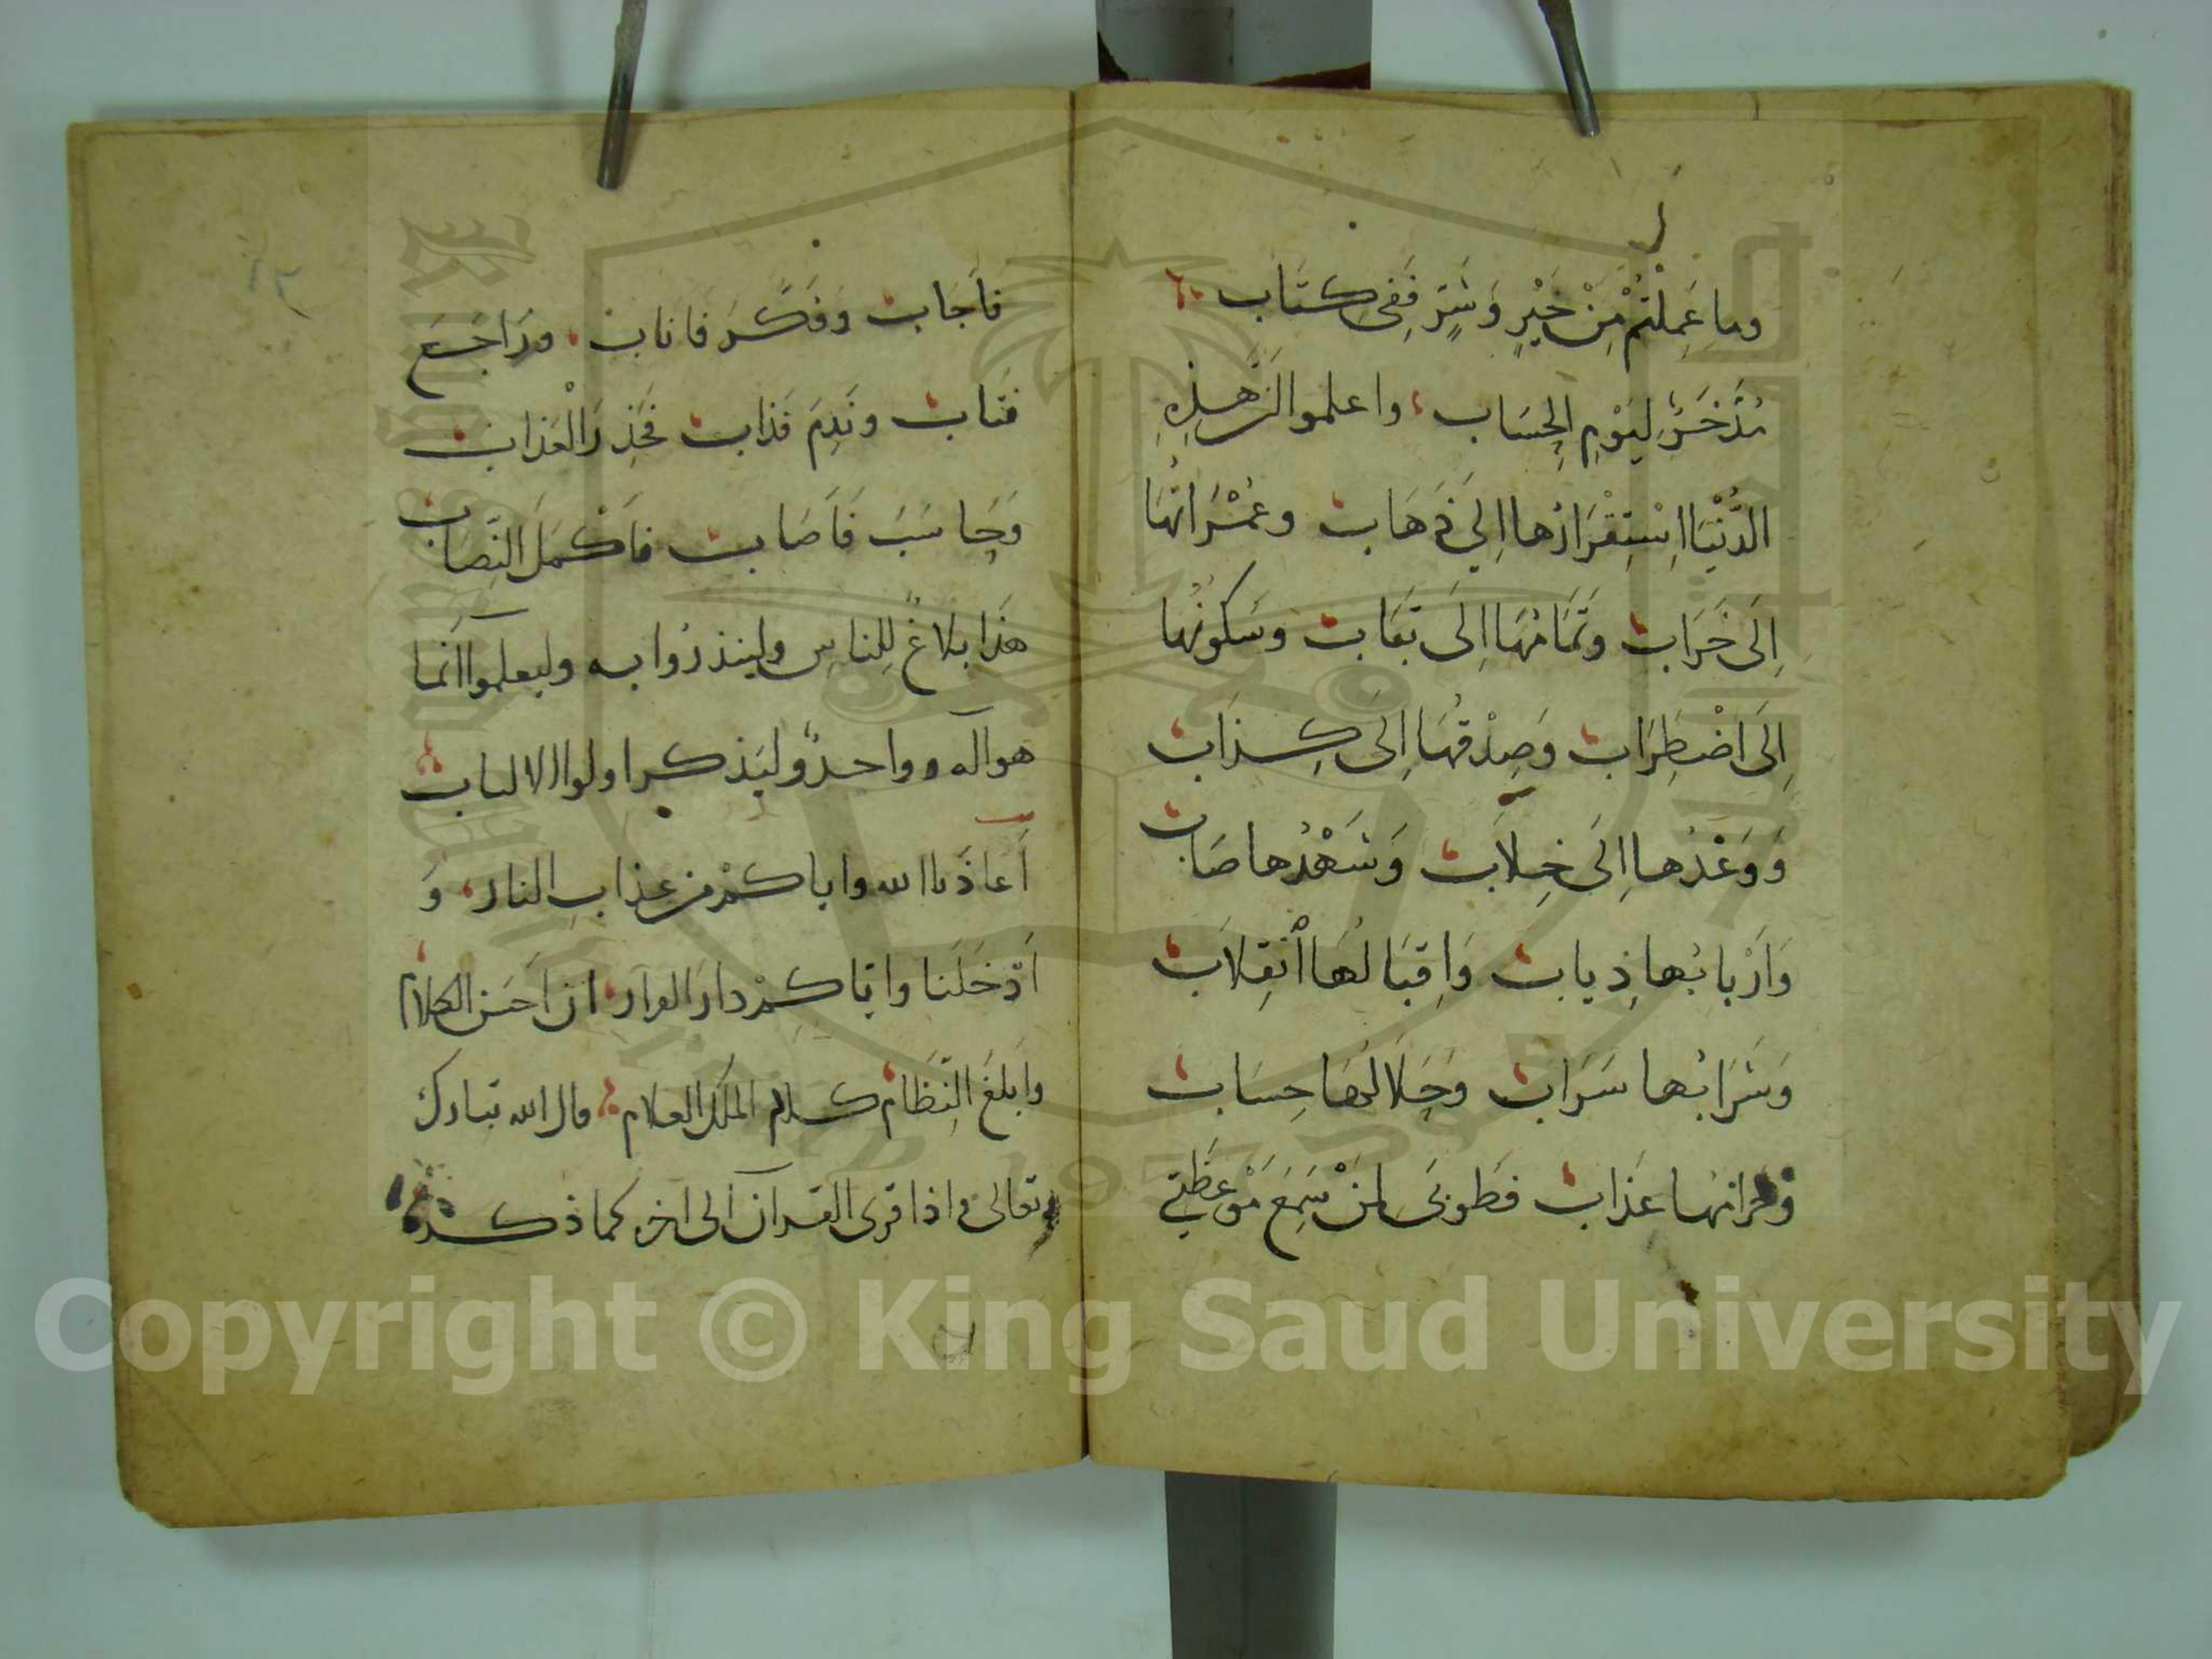 وما عَمِلْتُمْ مِنْ خَيْرٍ وَشَرٍّ فَفِى كِتَاب
مُدَّخَرٌ لِيَوْمِ الحِسَاب واعلموا ان هذِهِ
الدُّنْيَا اِسْتِقْرَارُها اِلَى ذَهَاب وعُمْرَانُهَا
اِلَى خَرَاب وَتَمَامُهَا اِلَى تَبَاب وَسُكونُهَا
اِلَى اضْطِرَاب وَصِدْقُهَا اِلَى كِذَاب
وَوَعْدُها اِلَى خِلاب وَشَهْدُها صَاب
وَاَرْبَابُها ذِياب وَاِقبَالُهَا اْنقِلاَب
وَشَرَابُها سَرَاب وَحَلاَلُهَا حِسَاب
وحرامُها عَذَاب فَطُوبَى لِمَنْ سَمِعَ مَوْعِظَتِي
فَاَجَاب وَفَكَّرَ فَاَنَاب ورَاجَعَ
فَتَاب ونَدِمَ فَذَاب فَحَذِرَ الْعَذاب
وَحَاسَبَ فَاَصَاب فاَكْمَلَ النِّصَاب
هَذَا بلاغٌ لِلناسِ ولينذرُوا به وليعلموا اَنما
هو اله واحدٌ وليَذكر اولوا الالباب
اَعاذَنا الله واياكمْ من عذابِ النار وَ
اَدْخَلَنا وايَّاكمْ دارَ القرار ان اَحسَن الكلام
وابلَغَ النِّظَام كلام الملك العلام قال الله تبارك
وتعالى واذا قرى القرآن الى اخره كما ذكر
Copyright © King Saud University